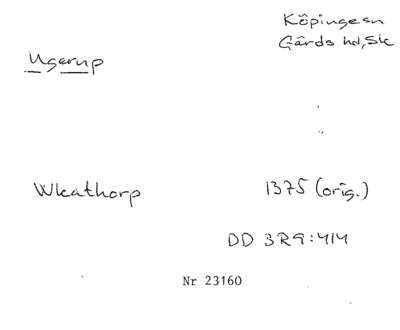 Köpingesn
Gärds hd, Sk
Ugerup
Wkathorp 1375 (orig.)
DD 3R9:414
Nr 23160